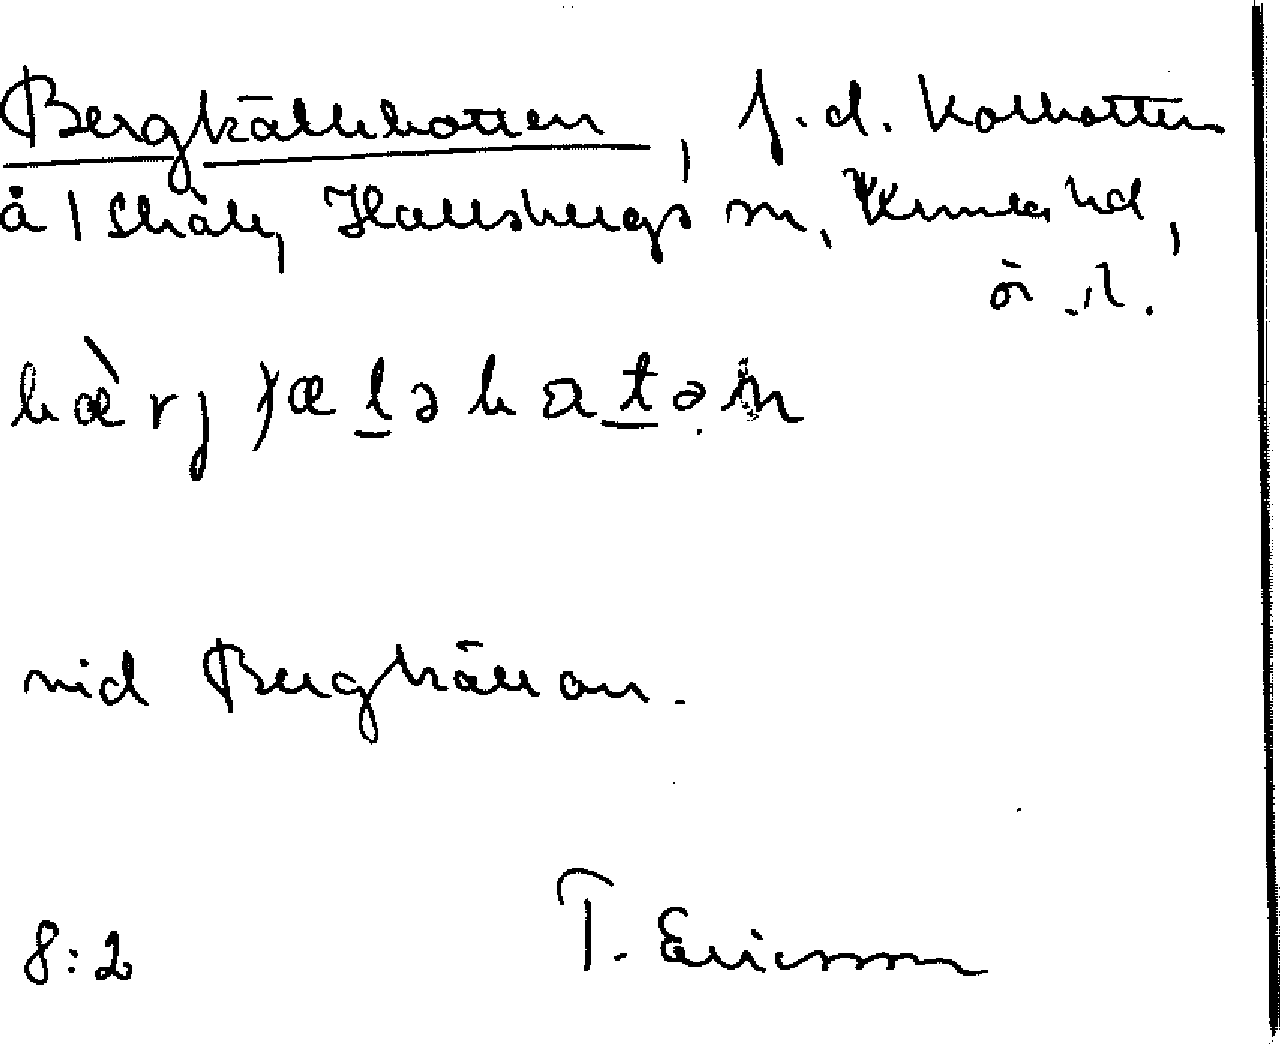 Bergkällekotten, f.d. kolkotten
å 1 Skäle, Hallsbergs sn, Kumla hd,
ö. l.
bæ̀rj
vid Bergkällan.
8:2 T. Ericsson